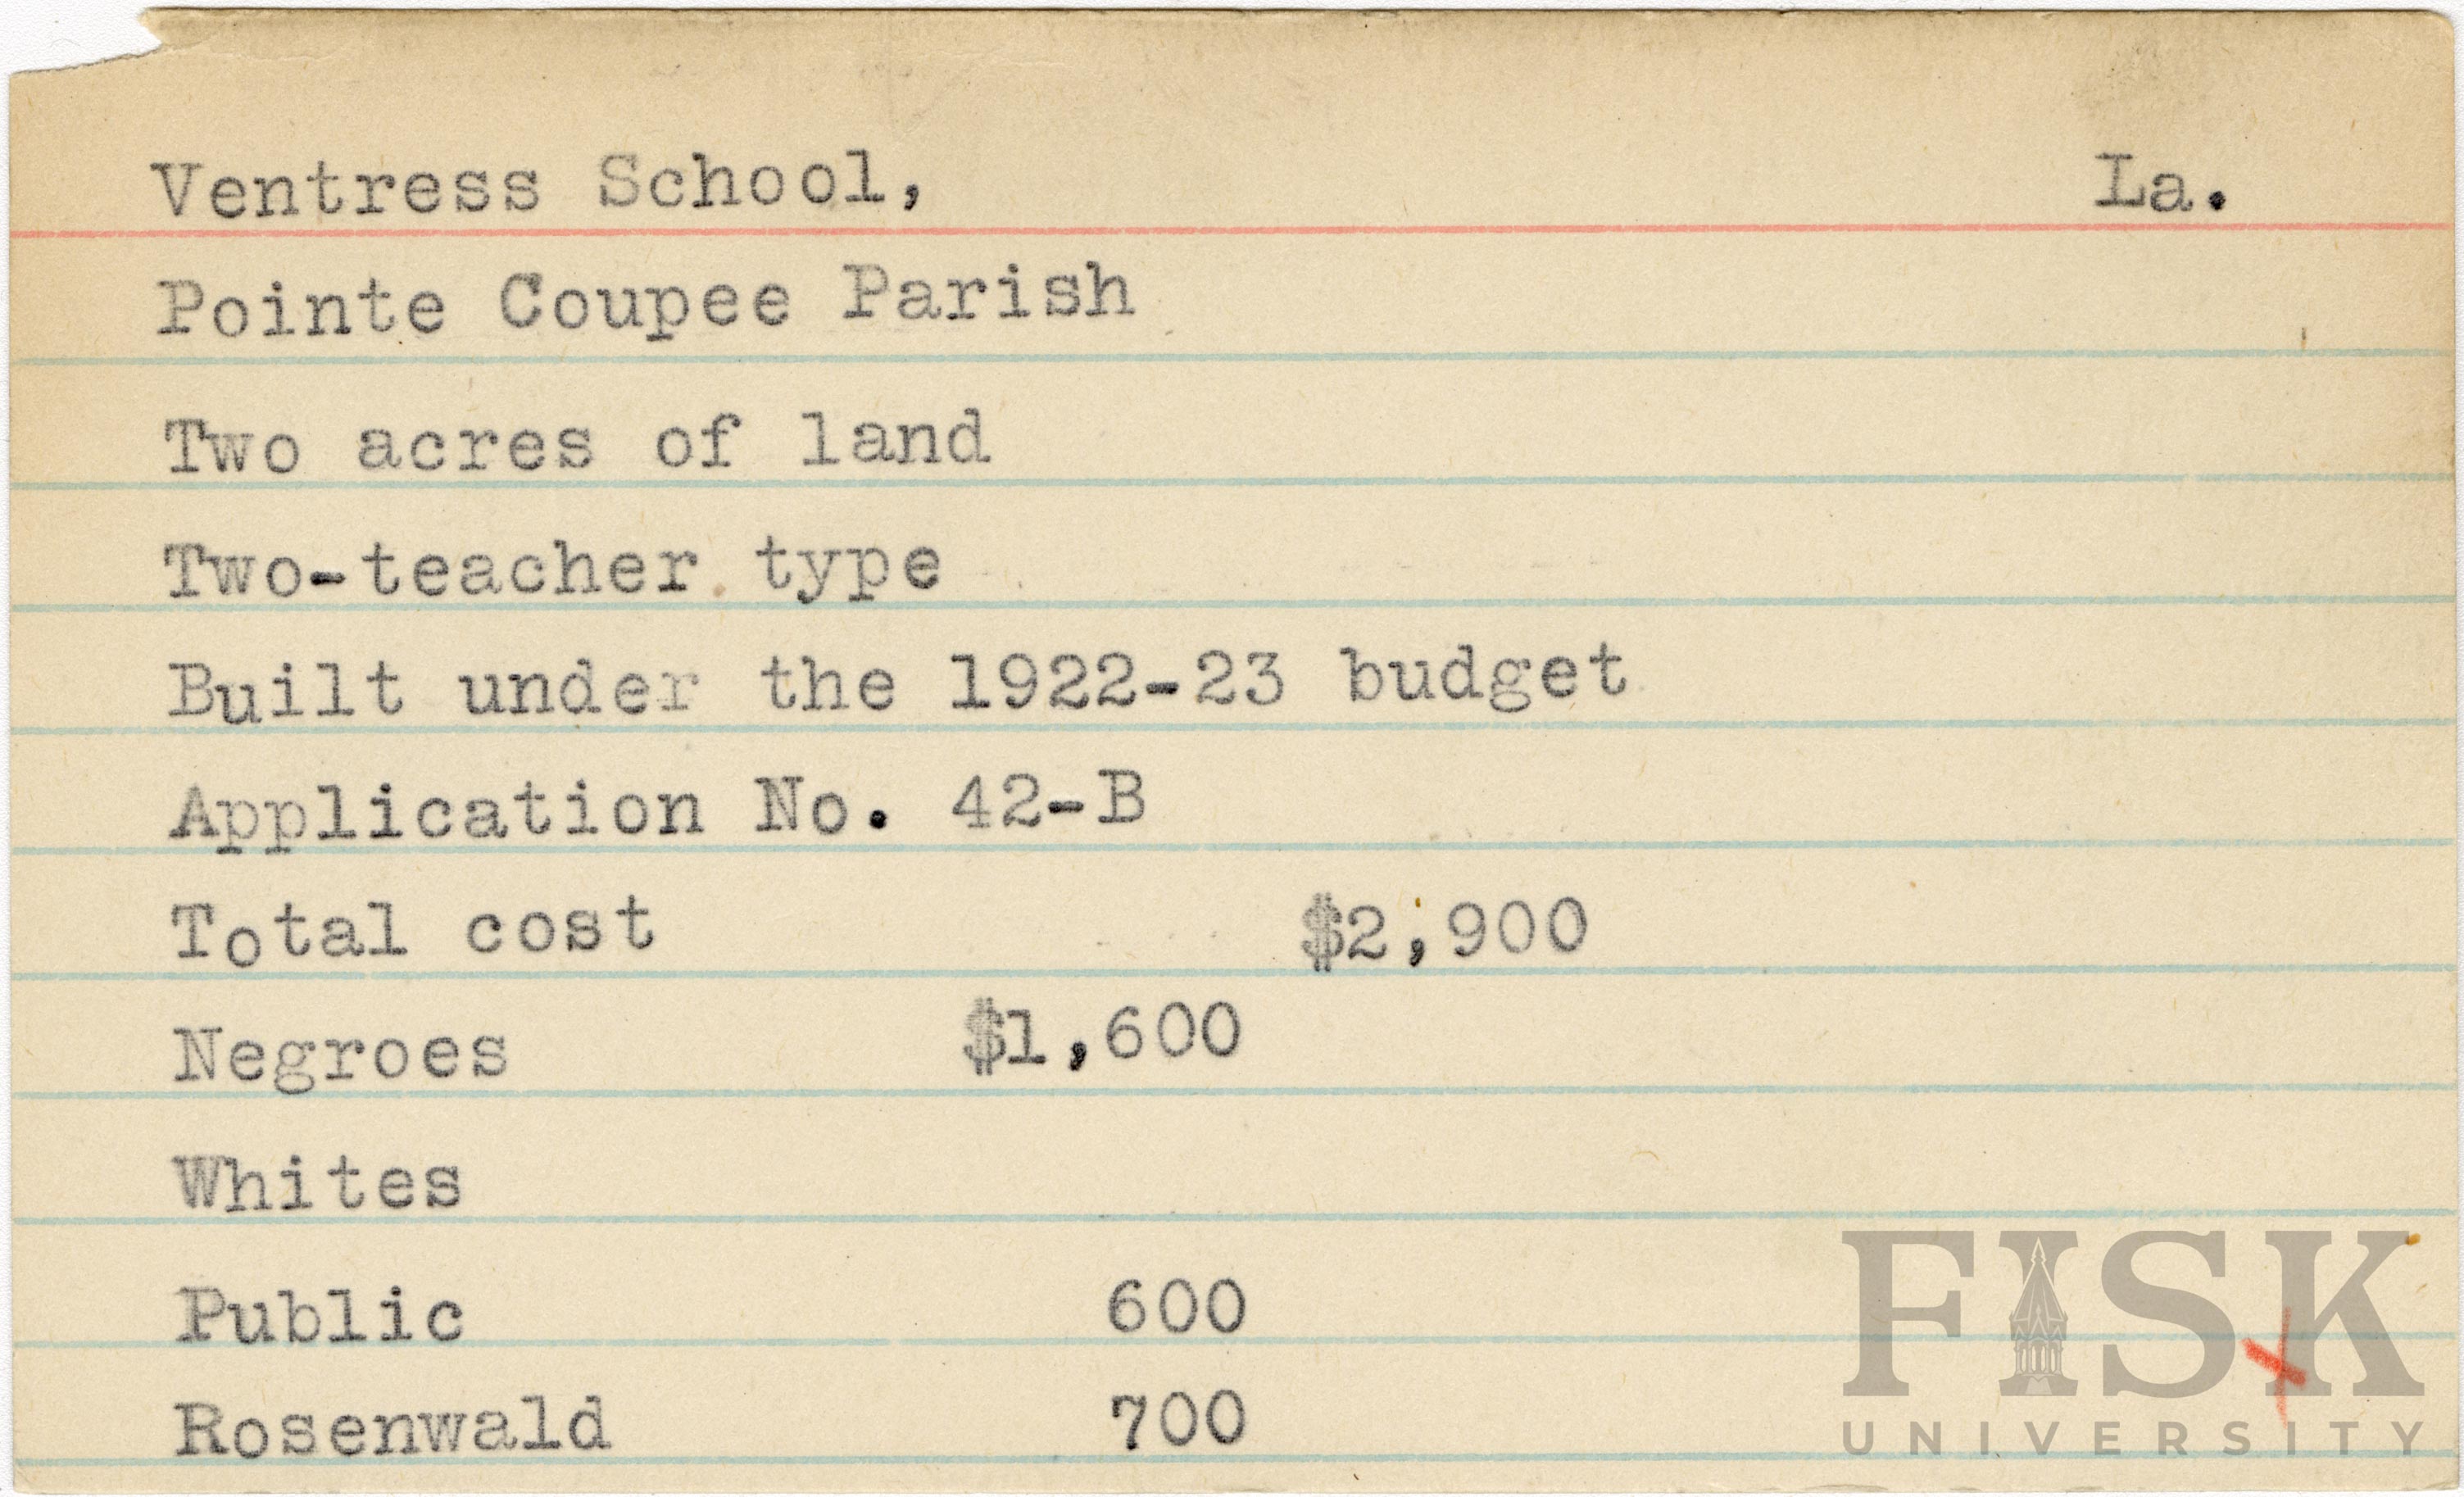 Ventress School, La.
Pointe Coupee Parish
Two acres of land
Two-teacher type
Built under the 1922-23 budget
Application No. 42-B
Total cost $2,900
Negroes $1,600
Whites
Public 600
Rosenwald 700
FISK
UNIVERSITY